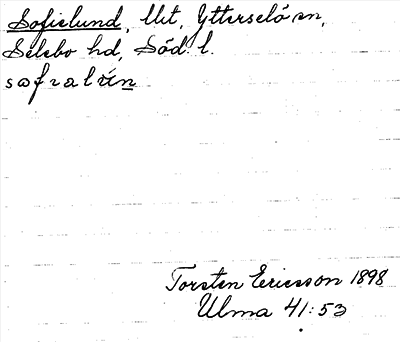 Sofielund, llit, Ytterselö sn,
Selebo hd, Söd. l.
Torsten Ericsson 1898
Ulma 41:53